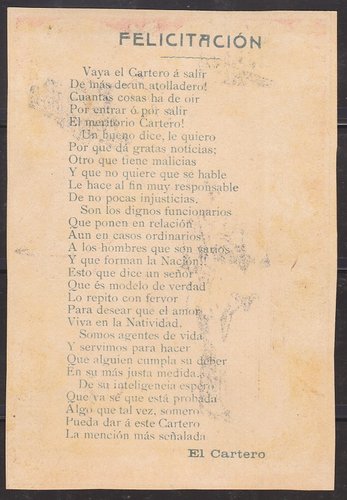 FELICITACIÓN
Vaya el Cartero á salir
De más de un atolladero!
Cuantas cosas ha de oir
Por entrar ó por salir
El meritorio Cartero!
Un bueno dice, le quiero
Por que dá gratas noticias;
Otro que tiene malicias
Y que no quiere que se hable
Le hace al fin muy responsable
De no pocas injusticias.
Son los dignos funcionarios
Que ponen en relación
Aun en casos ordinarios
A los hombres que son varios
Y que forman la Nación!!
Esto que dice un señor
Que és modelo de verdad
Lo repito con fervor
Para desear que el amor
Viva en la Natividad.
Somos agentes de vida
Y servimos para hacer
Que alguien cumpla su deber
En su más justa medida.
De su inteligencia espero
Que ya sé que está probada
Algo que tal vez, somero
Pueda dar á este Cartero
La mención más señalada
El Cartero